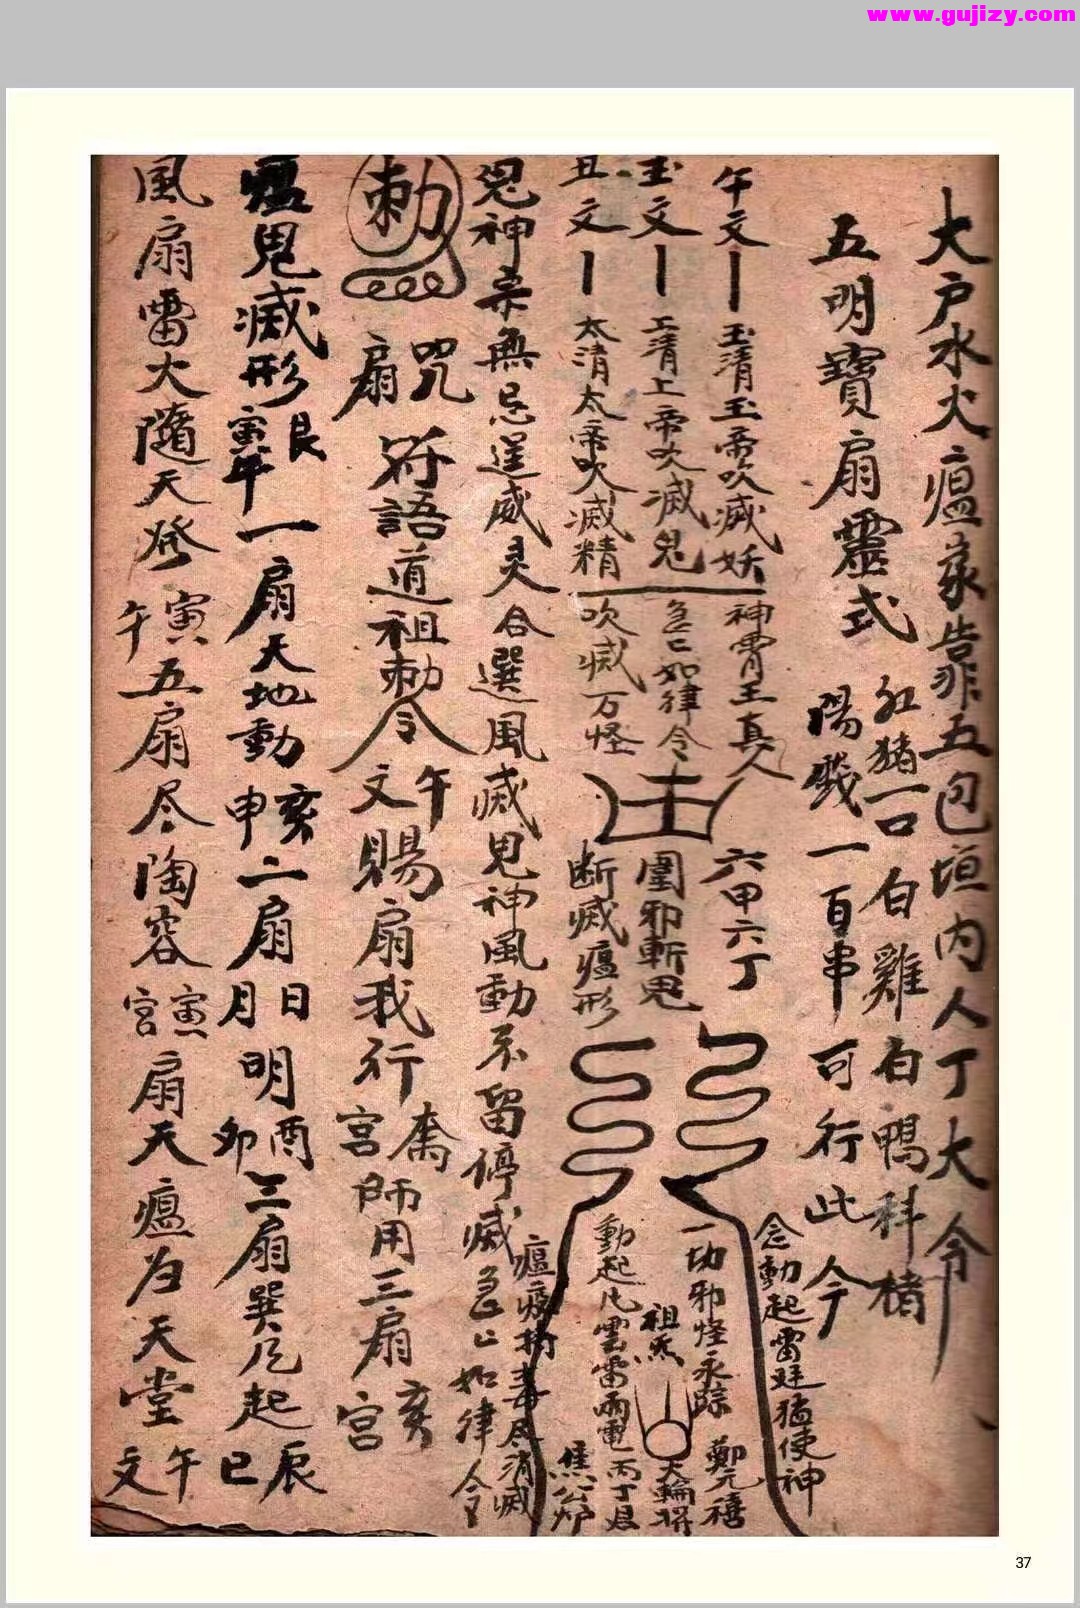 www.gujizy.com
大户水火瘟家告非五包垣内人丁大令
五明寶扇靈式
红猪一口白雞白鴨科楮
陽錢一百串可行此令
午文
玉清玉帝吹滅妖
玉文
上清上帝吹滅鬼
丑文
太清太帝吹滅精
神霄王真人
急急如律令
吹滅万怪
六甲六丁
圍邪斬鬼
断滅瘟形
念動起雷廷猛使神
一切邪怪永踪
鄭元禧
祖炁
大輪將
動起凡雲雷雨電
丙丁呂
焦公炉
鬼神
無忌逞威灵合選風滅鬼神風動不留停滅
瘟疫
毒尽消滅
急急如律令
勅
咒扇
符語道祖勅令
午文
賜扇我行
寅宮
師用三扇
亥宮
瘟鬼滅形
艮寅午
一扇天地動
亥申
二扇
日月
明
酉卯
三扇巽風起
辰巳
風扇雷火隨天發
寅午
五扇尽陶容
寅宮
扇天瘟为天堂
午文
37